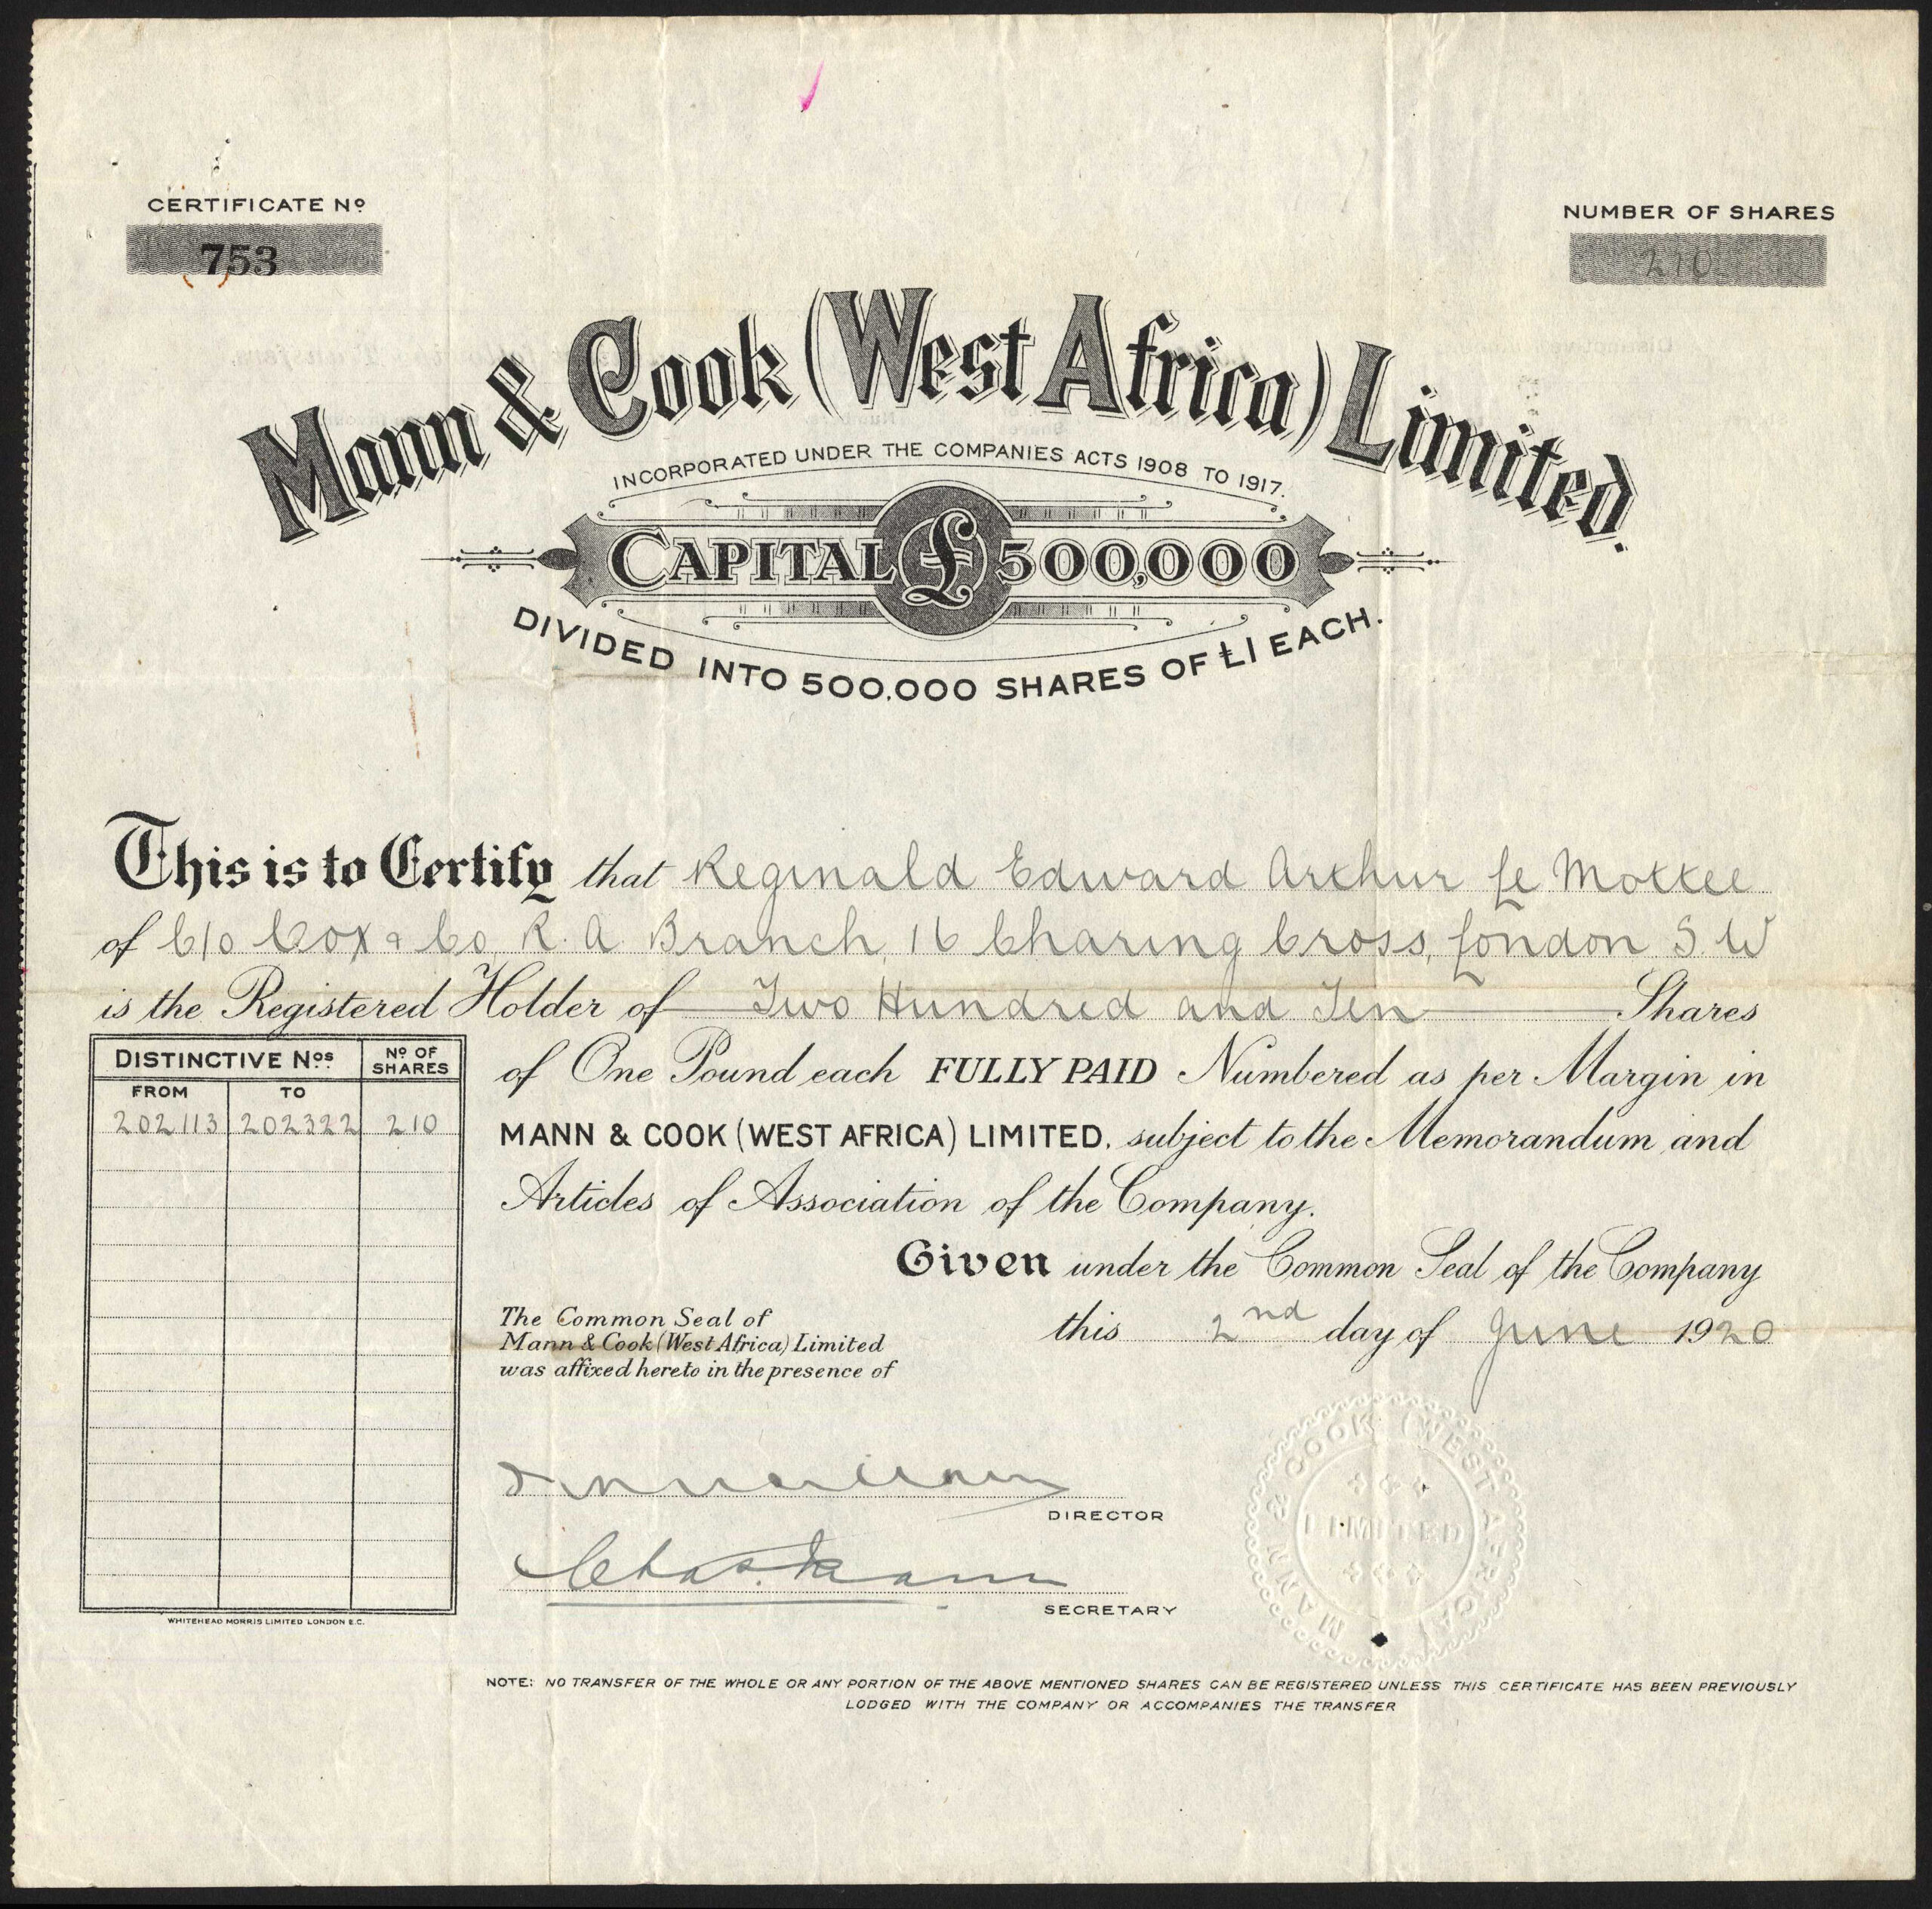 CERTIFICATE Nº
753
NUMBER OF SHARES
210
Mann & Cook (West Africa) Limited.
INCORPORATED UNDER THE COMPANIES ACTS 1908 TO 1917.
CAPITAL £ 500,000
DIVIDED INTO 500,000 SHARES OF £1 EACH.
This is to Certify that Reginald Edward Arthur Le Mottee
of C/o Cox & Co, R. A Branch, 16 Charing Cross, London S. W
is the Registered Holder of Two Hundred and Ten Shares
of One Pound each FULLY PAID Numbered as per Margin in
MANN & COOK (WEST AFRICA) LIMITED, subject to the Memorandum and
Articles of Association of the Company.
Given under the Common Seal of the Company
this 2nd day of June 1920
DISTINCTIVE Nos. Nº OF SHARES
FROM TO
202113 202322 210
The Common Seal of
Mann & Cook (West Africa) Limited
was affixed hereto in the presence of
DIRECTOR
Chas. Mann
SECRETARY
MANN & COOK (WEST AFRICA)
LIMITED
WHITEHEAD MORRIS LIMITED LONDON E.C.
NOTE: NO TRANSFER OF THE WHOLE OR ANY PORTION OF THE ABOVE MENTIONED SHARES CAN BE REGISTERED UNLESS THIS CERTIFICATE HAS BEEN PREVIOUSLY
LODGED WITH THE COMPANY OR ACCOMPANIES THE TRANSFER